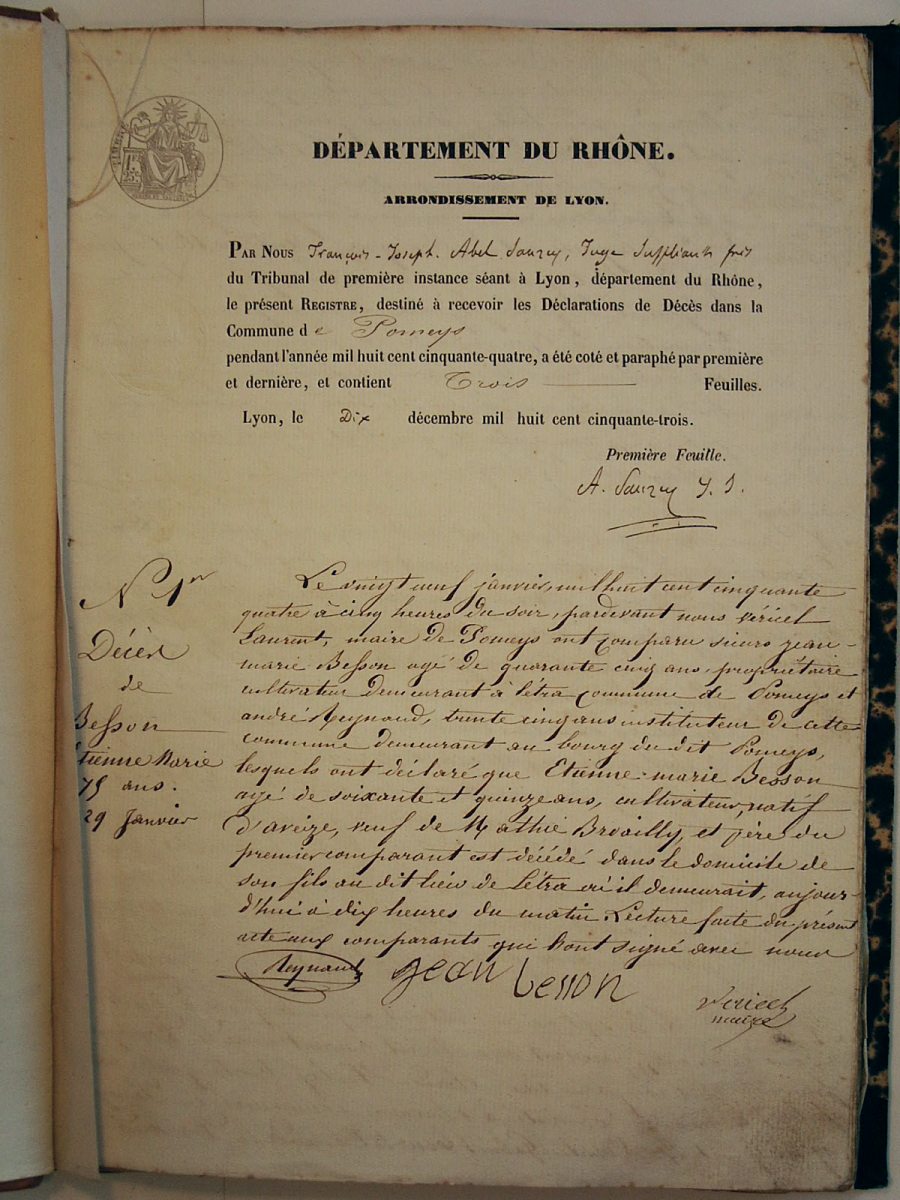 TIMBRE
DÉPARTEMENT DU RHÔNE.
ARRONDISSEMENT DE LYON.
PAR NOUS François-Joseph. Abel Sauzey, Juge Suppléant près
du Tribunal de première instance séant à Lyon, département du Rhône,
le présent REGISTRE, destiné à recevoir les Déclarations de Décès dans la
Commune de Pomeys
pendant l'année mil huit cent cinquante-quatre, a été coté et paraphé par première
et dernière, et contient Trois Feuilles.
Lyon, le Dix décembre mil huit cent cinquante-trois.
Première Feuille.
A. Sauzey J. S.
N° 1er
Décès
de
Besson
Etienne Marie
75 ans.
29 Janvier
Le vingt neuf janvier, mil huit cent cinquante
quatre à cinq heures du soir, pardevant nous véricel
Laurent, maire de Pomeys ont comparu sieurs jean-
marie Besson agé de quarante cinq ans, propriétaire
cultivateur demeurant à létra commune de Pomeys et
andré Reynaud, trente cinq ans instituteur de cette
commune demeurant au bourg du dit Pomeys,
lesquels ont déclaré que Etienne-marie Besson
agé de soixante et quinze ans, cultivateur, natif
d'aveize, veuf de Mathie Brouilly, et père du
premier comparant est décédé dans le domicile de
son fils au dit lieu de Létra où il demeurait, aujour-
d'hui à dix heures du matin Lecture faite du présent
acte aux comparants qui l'ont signé avec nous
Reynaud Jean besson
Vericel
maire